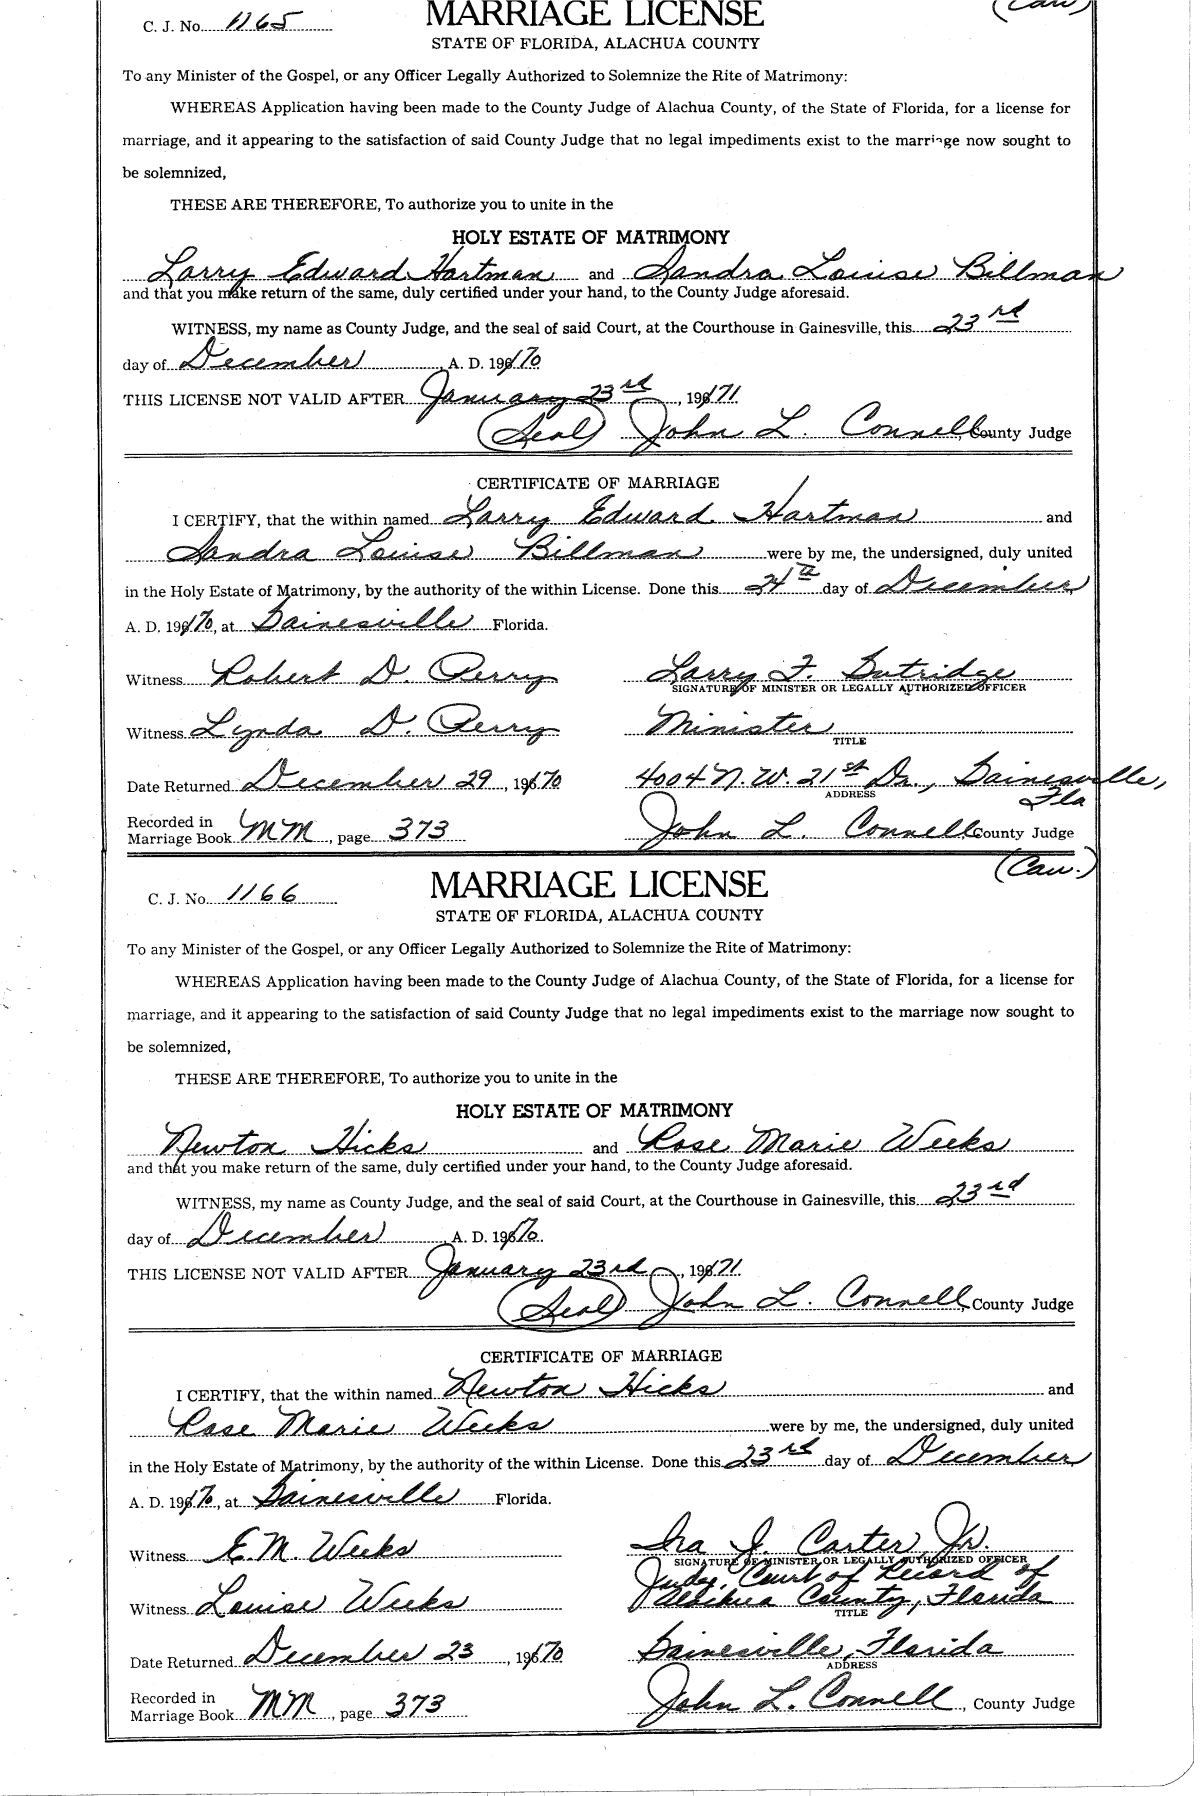 C. J. No. 1165
MARRIAGE LICENSE
(Cau)
STATE OF FLORIDA, ALACHUA COUNTY
To any Minister of the Gospel, or any Officer Legally Authorized to Solemnize the Rite of Matrimony:
WHEREAS Application having been made to the County Judge of Alachua County, of the State of Florida, for a license for
marriage, and it appearing to the satisfaction of said County Judge that no legal impediments exist to the marriage now sought to
be solemnized,
THESE ARE THEREFORE, To authorize you to unite in the
HOLY ESTATE OF MATRIMONY
Larry Edward Hartman and Sandra Louise Billman
and that you make return of the same, duly certified under your hand, to the County Judge aforesaid.
WITNESS, my name as County Judge, and the seal of said Court, at the Courthouse in Gainesville, this 23rd
day of December, A. D. 1970
THIS LICENSE NOT VALID AFTER January 23rd, 1971
(Seal) John L. Connell, County Judge
CERTIFICATE OF MARRIAGE
I CERTIFY, that the within named Larry Edward Hartman and
Sandra Louise Billman were by me, the undersigned, duly united
in the Holy Estate of Matrimony, by the authority of the within License. Done this 24th day of December
A. D. 1970, at Gainesville Florida.
Witness Robert D. Perry Larry F. Gutridge
SIGNATURE OF MINISTER OR LEGALLY AUTHORIZED OFFICER
Witness Lynda D. Perry Minister
TITLE
Date Returned December 29, 1970 4004 N. W. 21st Dr., Gainesville,
ADDRESS Fla
Recorded in
Marriage Book MM, page 373 John L. Connell, County Judge
(Cau.)
C. J. No. 1166
MARRIAGE LICENSE
STATE OF FLORIDA, ALACHUA COUNTY
To any Minister of the Gospel, or any Officer Legally Authorized to Solemnize the Rite of Matrimony:
WHEREAS Application having been made to the County Judge of Alachua County, of the State of Florida, for a license for
marriage, and it appearing to the satisfaction of said County Judge that no legal impediments exist to the marriage now sought to
be solemnized,
THESE ARE THEREFORE, To authorize you to unite in the
HOLY ESTATE OF MATRIMONY
Newton Hicks and Rose Marie Weeks
and that you make return of the same, duly certified under your hand, to the County Judge aforesaid.
WITNESS, my name as County Judge, and the seal of said Court, at the Courthouse in Gainesville, this 23rd
day of December, A. D. 1970
THIS LICENSE NOT VALID AFTER January 23rd, 1971
(Seal) John L. Connell, County Judge
CERTIFICATE OF MARRIAGE
I CERTIFY, that the within named Newton Hicks and
Rose Marie Weeks were by me, the undersigned, duly united
in the Holy Estate of Matrimony, by the authority of the within License. Done this 23rd day of December
A. D. 1970, at Gainesville Florida.
Witness E.M. Weeks Ira J. Carter, Jr.
SIGNATURE OF MINISTER OR LEGALLY AUTHORIZED OFFICER
Judge, Court of Record of
Witness Louise Weeks Alachua County, Florida
TITLE
Date Returned December 23, 1970 Gainesville, Florida
ADDRESS
Recorded in
Marriage Book MM, page 373 John L. Connell, County Judge